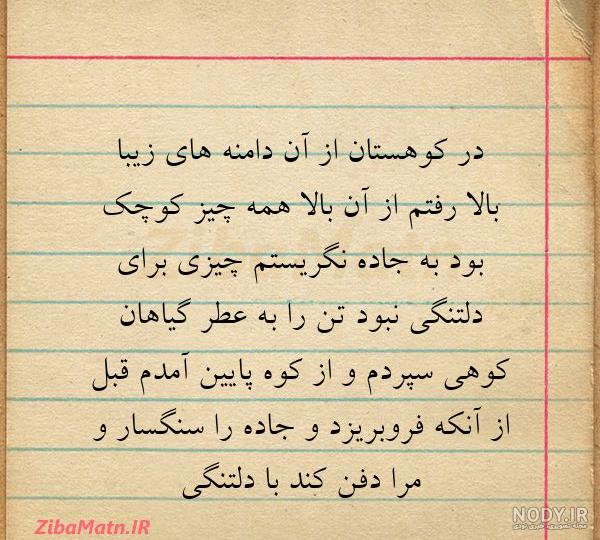 در کوهستان از آن دامنه های زیبا
بالا رفتم از آن بالا همه چیز کوچک
بود به جاده نگریستم چیزی برای
دلتنگی نبود تن را به عطر گیاهان
کوهی سپردم و از کوه پایین آمدم قبل
از آنکه فروبریزد و جاده را سنگسار و
مرا دفن کند با دلتنگی
ZibaMatn.IR
NODY.IR
مجله تصویری، خبری نودی